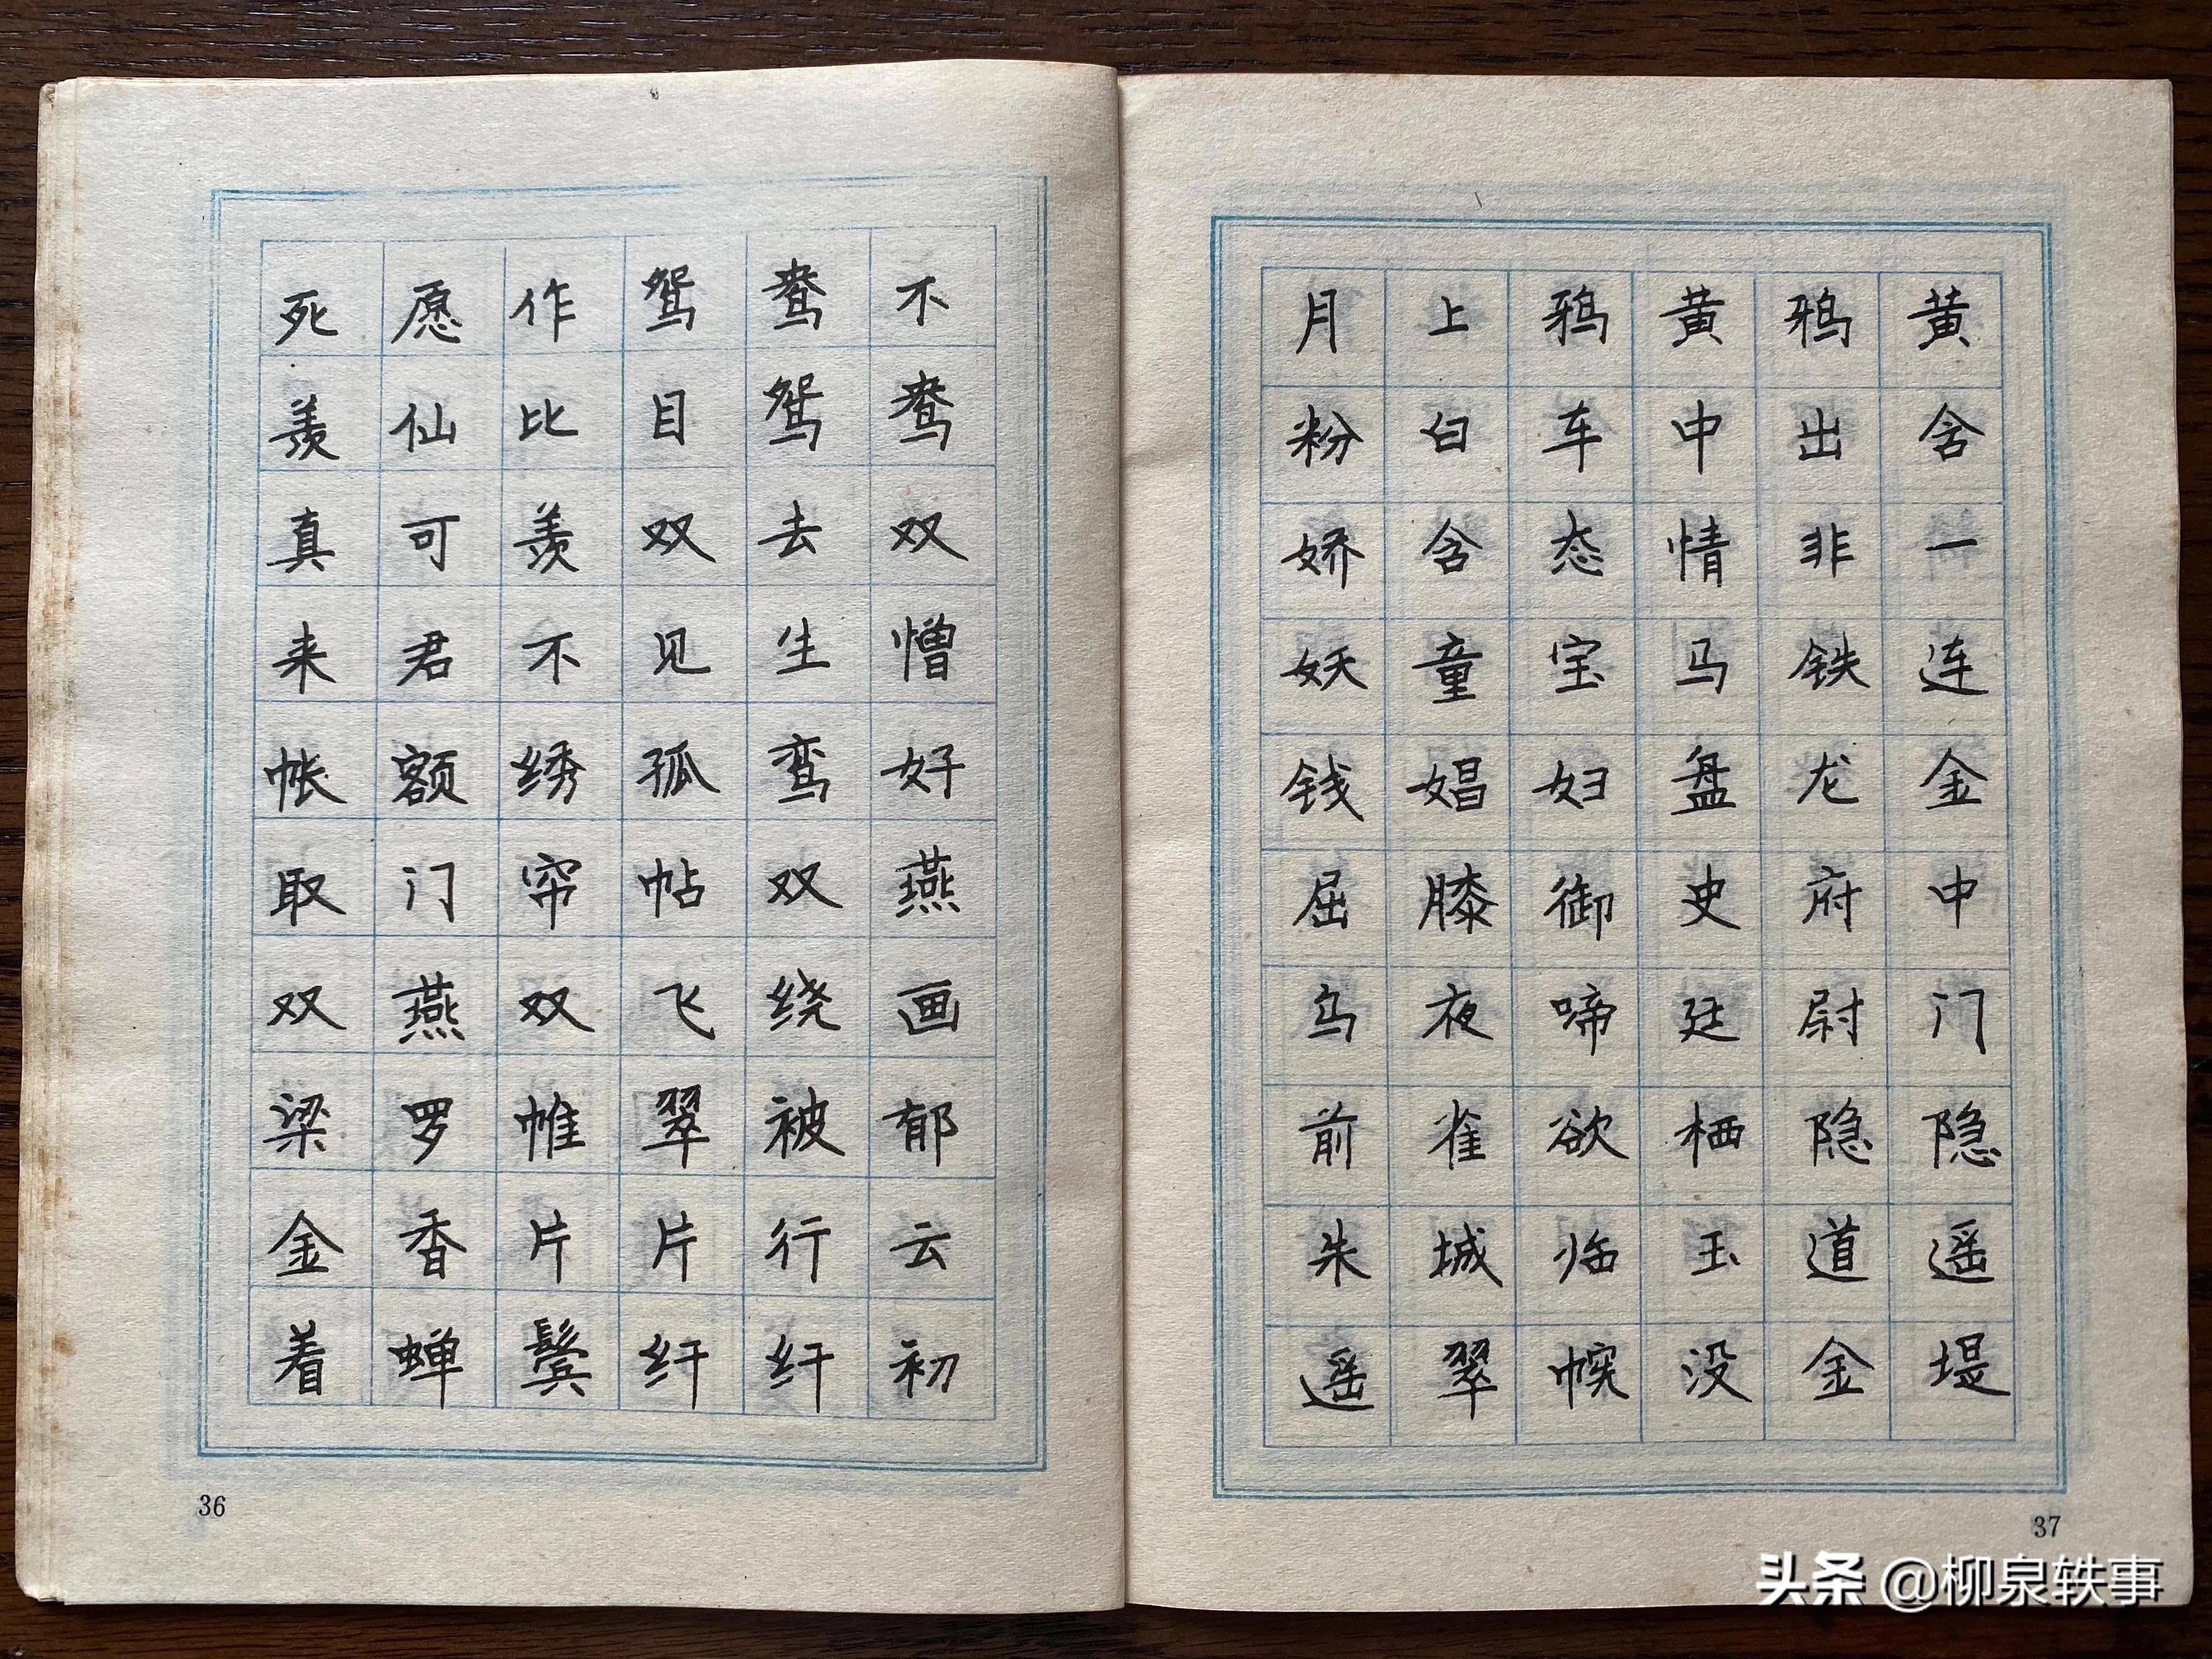 死愿作鸳鸯不
羡仙比目鸳鸯
真可羡双去双
来君不见生憎
帐额绣孤鸾好
取门帘帖双燕
双燕双飞绕画
梁罗帷翠被郁
金香片片行云
着蝉鬓纤纤初
36
月上鸦黄鸦黄
粉白车中出含
娇含态情非一
妖童宝马铁连
钱娼妇盘龙金
屈膝御史府中
乌夜啼廷尉门
前雀欲栖隐隐
朱城临玉道遥
遥翠幰没金堤
37
头条 @柳泉轶事